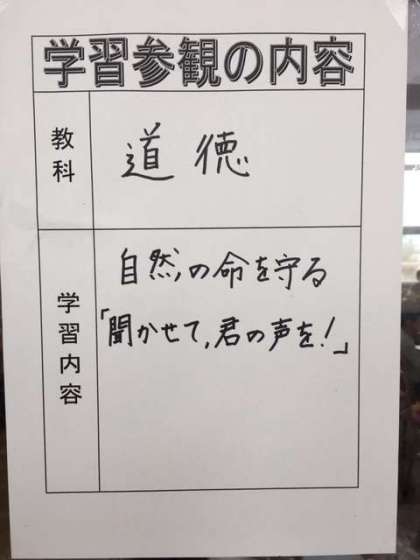 学習参観の内容
教科
道徳
学習内容
自然の命を守る
「聞かせて,君の声を!」